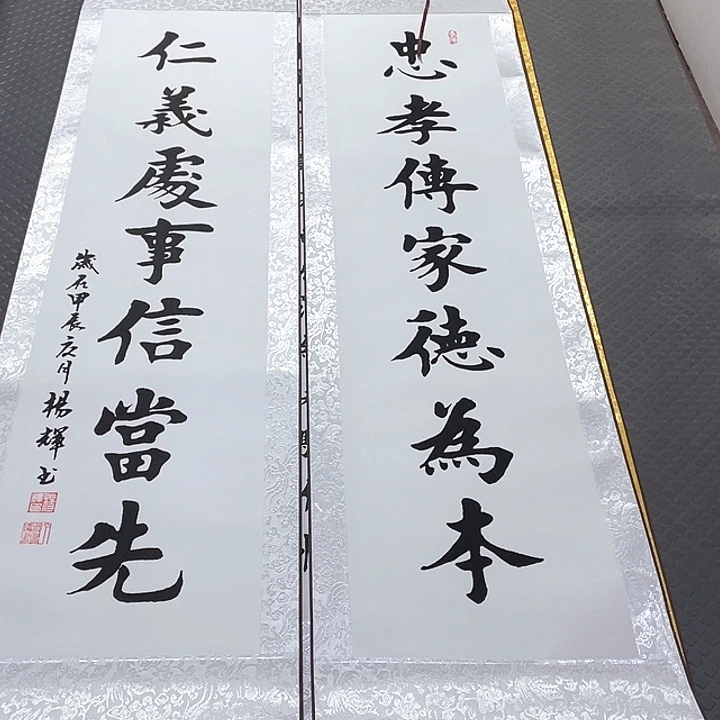 忠孝傳家德為本
仁義處事信當先
歲在甲辰之月楊輝书